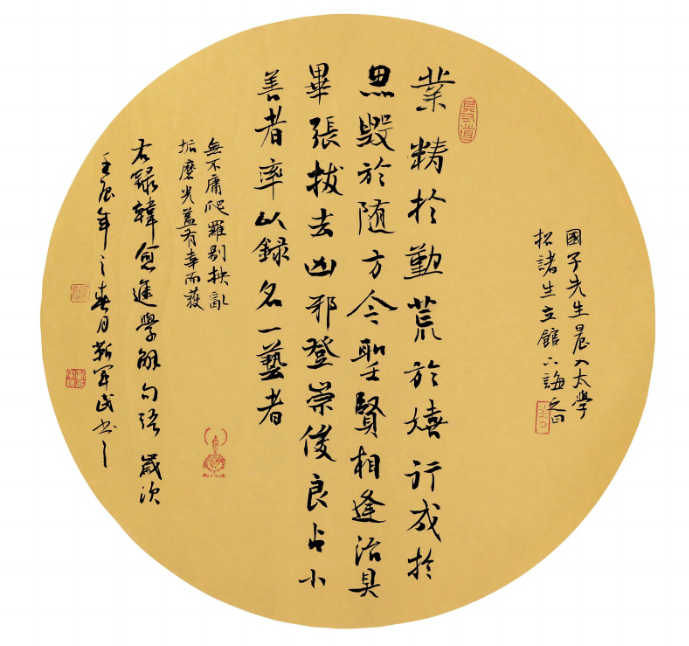 國子先生晨入太學
招諸生立館下誨之曰
業精於勤荒於嬉行成於
思毀於随方今聖賢相逢治具
畢張拔去凶邪登崇俊良占小
善者率以錄名一藝者
無不庸爬羅剔抉刮
垢磨光蓋有幸而獲
右錄韓愈進學解句語歲次
壬辰年之春月靳軍民書之